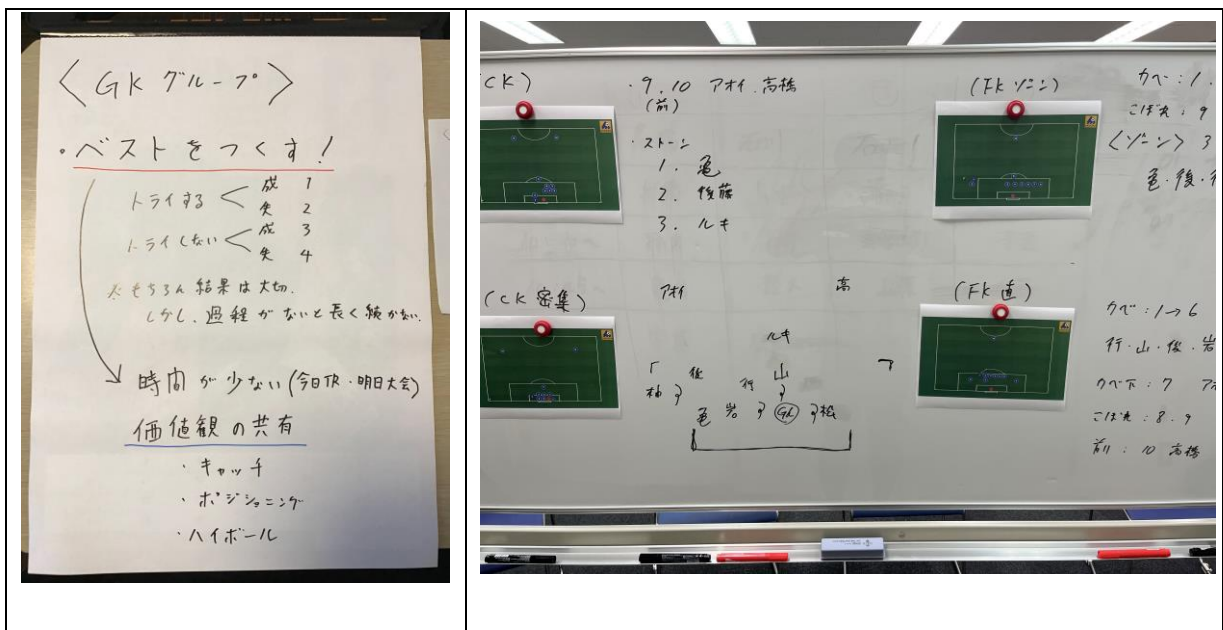 〈GKグループ〉
・ベストをつくす！
トライする < 成 1
失 2
トライしない < 成 3
失 4
※もちろん結果は大切.
しかし、過程がないと長く続かない.
時間が少ない(今日TR・明日大会)
価値観の共有
・キャッチ
・ポジショニング
・ハイボール
CK)
・9.10 アオイ.高橋
(前)
・ストーン
1. 亀
2. 後藤
3. ルキ
(FKゾーン)
カベ:1.
こぼれ:9
〈ゾーン〉3
亀・後・行
(CK密集)
アオイ 高
ルキ
後 行 山
柚
亀 岩 GK 松
(FK直)
カベ:1→6
行・山・後・岩
カベ下:7 ア
こぼれ:8.9
前:10 高橋